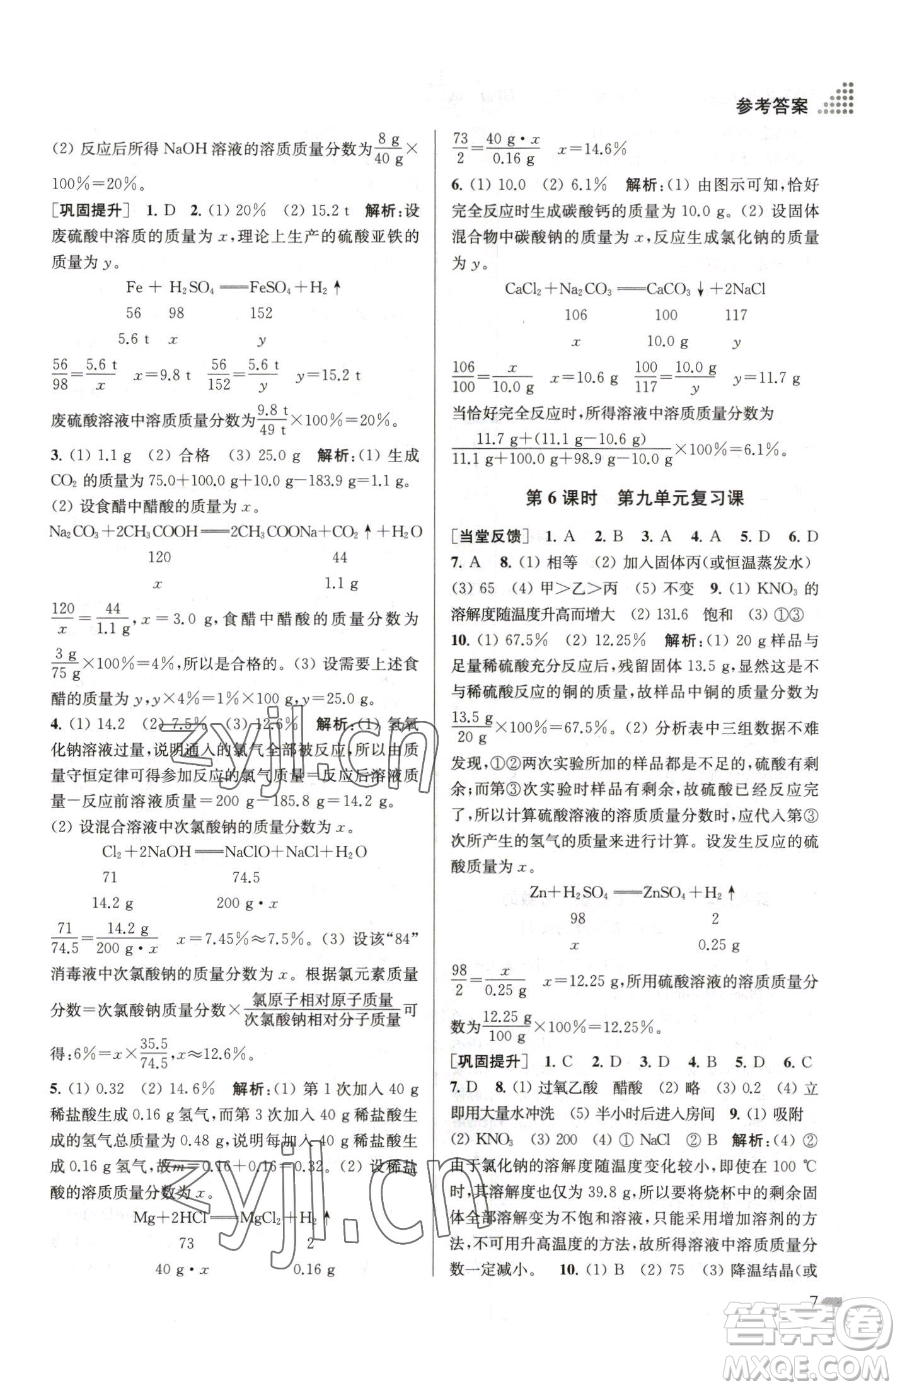 参考答案
(2) 反应后所得 NaOH 溶液的溶质质量分数为 8 g/40 g ×
100%=20%。
[巩固提升] 1. D 2. (1) 20% (2) 15.2 t 解析:设
废硫酸中溶质的质量为 x,理论上生产的硫酸亚铁的
质量为 y。
Fe + H₂SO₄══FeSO₄+H₂↑
56 98 152
5.6 t x y
56/98=5.6 t/x x=9.8 t 56/152=5.6 t/y y=15.2 t
废硫酸溶液中溶质质量分数为 9.8 t/49 t×100%=20%。
3. (1) 1.1 g (2) 合格 (3) 25.0 g 解析:(1) 生成
CO₂ 的质量为 75.0+100.0 g+10.0 g-183.9 g=1.1 g。
(2) 设食醋中醋酸的质量为 x。
Na₂CO₃+2CH₃COOH══2CH₃COONa+CO₂↑+H₂O
120 44
x 1.1 g
120/x=44/1.1 g,x=3.0 g,食醋中醋酸的质量分数为
3 g/75 g×100%=4%,所以是合格的。(3) 设需要上述食
醋的质量为 y,y×4%=1%×100 g,y=25.0 g。
4. (1) 14.2 (2) 7.5% (3) 12.6% 解析:(1) 氢氧
化钠溶液过量,说明通入的氯气全部被反应,所以由质
量守恒定律可得参加反应的氯气质量=反应后溶液质
量-反应前溶液质量=200 g-185.8 g=14.2 g。
(2) 设混合溶液中次氯酸钠的质量分数为 x。
Cl₂+2NaOH══NaClO+NaCl+H₂O
71 74.5
14.2 g 200 g·x
71/74.5=14.2 g/200 g·x x=7.45%≈7.5%。(3) 设该“84”
消毒液中次氯酸钠的质量分数为 x。根据氯元素质量
分数=次氯酸钠质量分数×氯原子相对原子质量/次氯酸钠相对分子质量可
得:6%=x×35.5/74.5。
5. (1) 0.32 (2) 14.6% 解析:(1) 第 1 次加入 40 g
稀盐酸生成 0.16 g 氢气,而第 3 次加入 40 g 稀盐酸生
成的氢气总质量为 0.48 g,说明每加入 40 g 稀盐酸生
成 0.16 g 氢气,故m=0.16+0.16=0.32。(2) 设稀盐
酸的溶质质量分数为 x。
Mg+2HCl══MgCl₂+H₂↑
73 2
40 g·x 0.16 g
73/2=40 g·x/0.16 g x=14.6%
6. (1) 10.0 (2) 6.1% 解析:(1) 由图示可知,恰好
完全反应时生成碳酸钙的质量为 10.0 g。(2) 设固体
混合物中碳酸钠的质量为 x,反应生成氯化钠的质量
为 y。
CaCl₂+Na₂CO₃══CaCO₃↓+2NaCl
106 100 117
x 10.0 g y
106/100=x/10.0 g x=10.6 g 100/117=10.0 g/y y=11.7 g
当恰好完全反应时,所得溶液中溶质质量分数为
11.7 g+(11.1 g-10.6 g)/11.1 g+100.0 g+98.9 g-10.0 g×100%=6.1%。
第 6 课时 第九单元复习课
[当堂反馈] 1. A 2. B 3. A 4. A 5. D 6. D
7. A 8. (1) 相等 (2) 加入固体丙(或恒温蒸发水)
(3) 65 (4) 甲>乙>丙 (5) 不变 9. (1) KNO₃ 的
溶解度随温度升高而增大 (2) 131.6 饱和 (3) ①③
10. (1) 67.5% (2) 12.25% 解析:(1) 20 g 样品与
足量稀硫酸充分反应后,残留固体 13.5 g,显然这是不
能与硫酸反应的铜的质量,故样品中铜的质量分数为
13.5 g/20 g×100%=67.5%。(2) 分析表中三组数据不难
发现,①②两次实验所加的样品都是不足的,硫酸有剩
余;第③次实验时样品有剩余,故硫酸此时已完全反
应,所以计算硫酸溶液的溶质质量分数时,应代入第③
次所产生的氢气的质量进行计算。设发生反应的硫
酸质量为 x。
Zn+H₂SO₄══ZnSO₄+H₂↑
98 2
x 0.25 g
98/2=x/0.25 g x=12.25 g,所用硫酸溶液的溶质质量分
数为12.25 g/100 g×100%=12.25%。
[巩固提升] 1. C 2. D 3. D 4. B 5. D 6. C
7. D 8. (1) 过氧乙酸 醋酸 (2) 略 (3) 0.2 (4) 立
即用大量水冲洗 (5) 半小时后进入房间 9. (1) 吸附
(2) KNO₃ (3) 200 (4) ① NaCl ② B 解析:(4) ②
由于氯化钠的溶解度随温度变化较小,即使在 100 ℃
时,其溶解度也仅为 39.8 g,所以要将烧杯中的剩余固
体全部溶解变为不饱和溶液,只能采用增加溶剂的方
法,不可用升高温度的方法,故所得溶液中溶质质量分
数一定减小。 10. (1) B (2) 75 (3) 降温结晶(或
7
zyjl.cn
zyjl.cn
答案圈
MXQE.COM